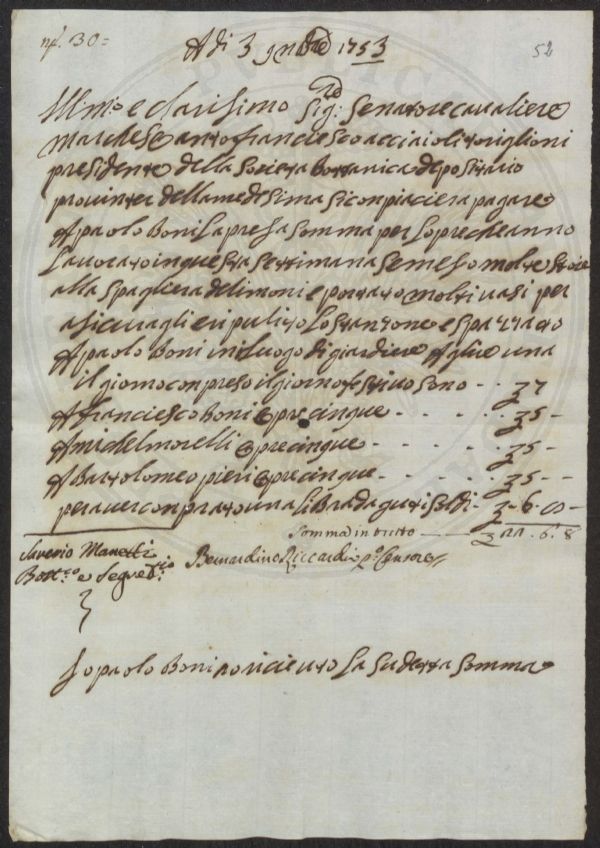 nº. 30=
A di 3 9mbre 1753
52
Ill.mo e clarisimo Sig:re Senatore cavaliere
marchese antofranciesco acciaioli toriglioni
presidente della Societa Bottanica depositario
provinter della medesima si conpiaciera pagare
A paolo Boni la presa somma per lopre che anno
lavorato in questa settimana semeso molte stoie
alla spagliera delimoni e portato molti vasi per
asicuragli e ripulito lo stanzone e spazzato
A paolo Boni in luogo di giardiere A glire una
il giorno conpreso il giorno festivo sono - - 7
A franciesco Boni opre cinque - - - - 5 -
A michelmorelli opre cinque - - - - 5 -
A Bartolomeo pieri opre cinque - - - - 5 - -
per aver conprato una libra daguti soldi - - 6
Somma in tutto 22 . 6 . 8
Saverio Manetti
Bott:co e Segret:rio
Bernardino Riccardi p:o Censore
Io paolo Boni o ricieuto la sudetta somma